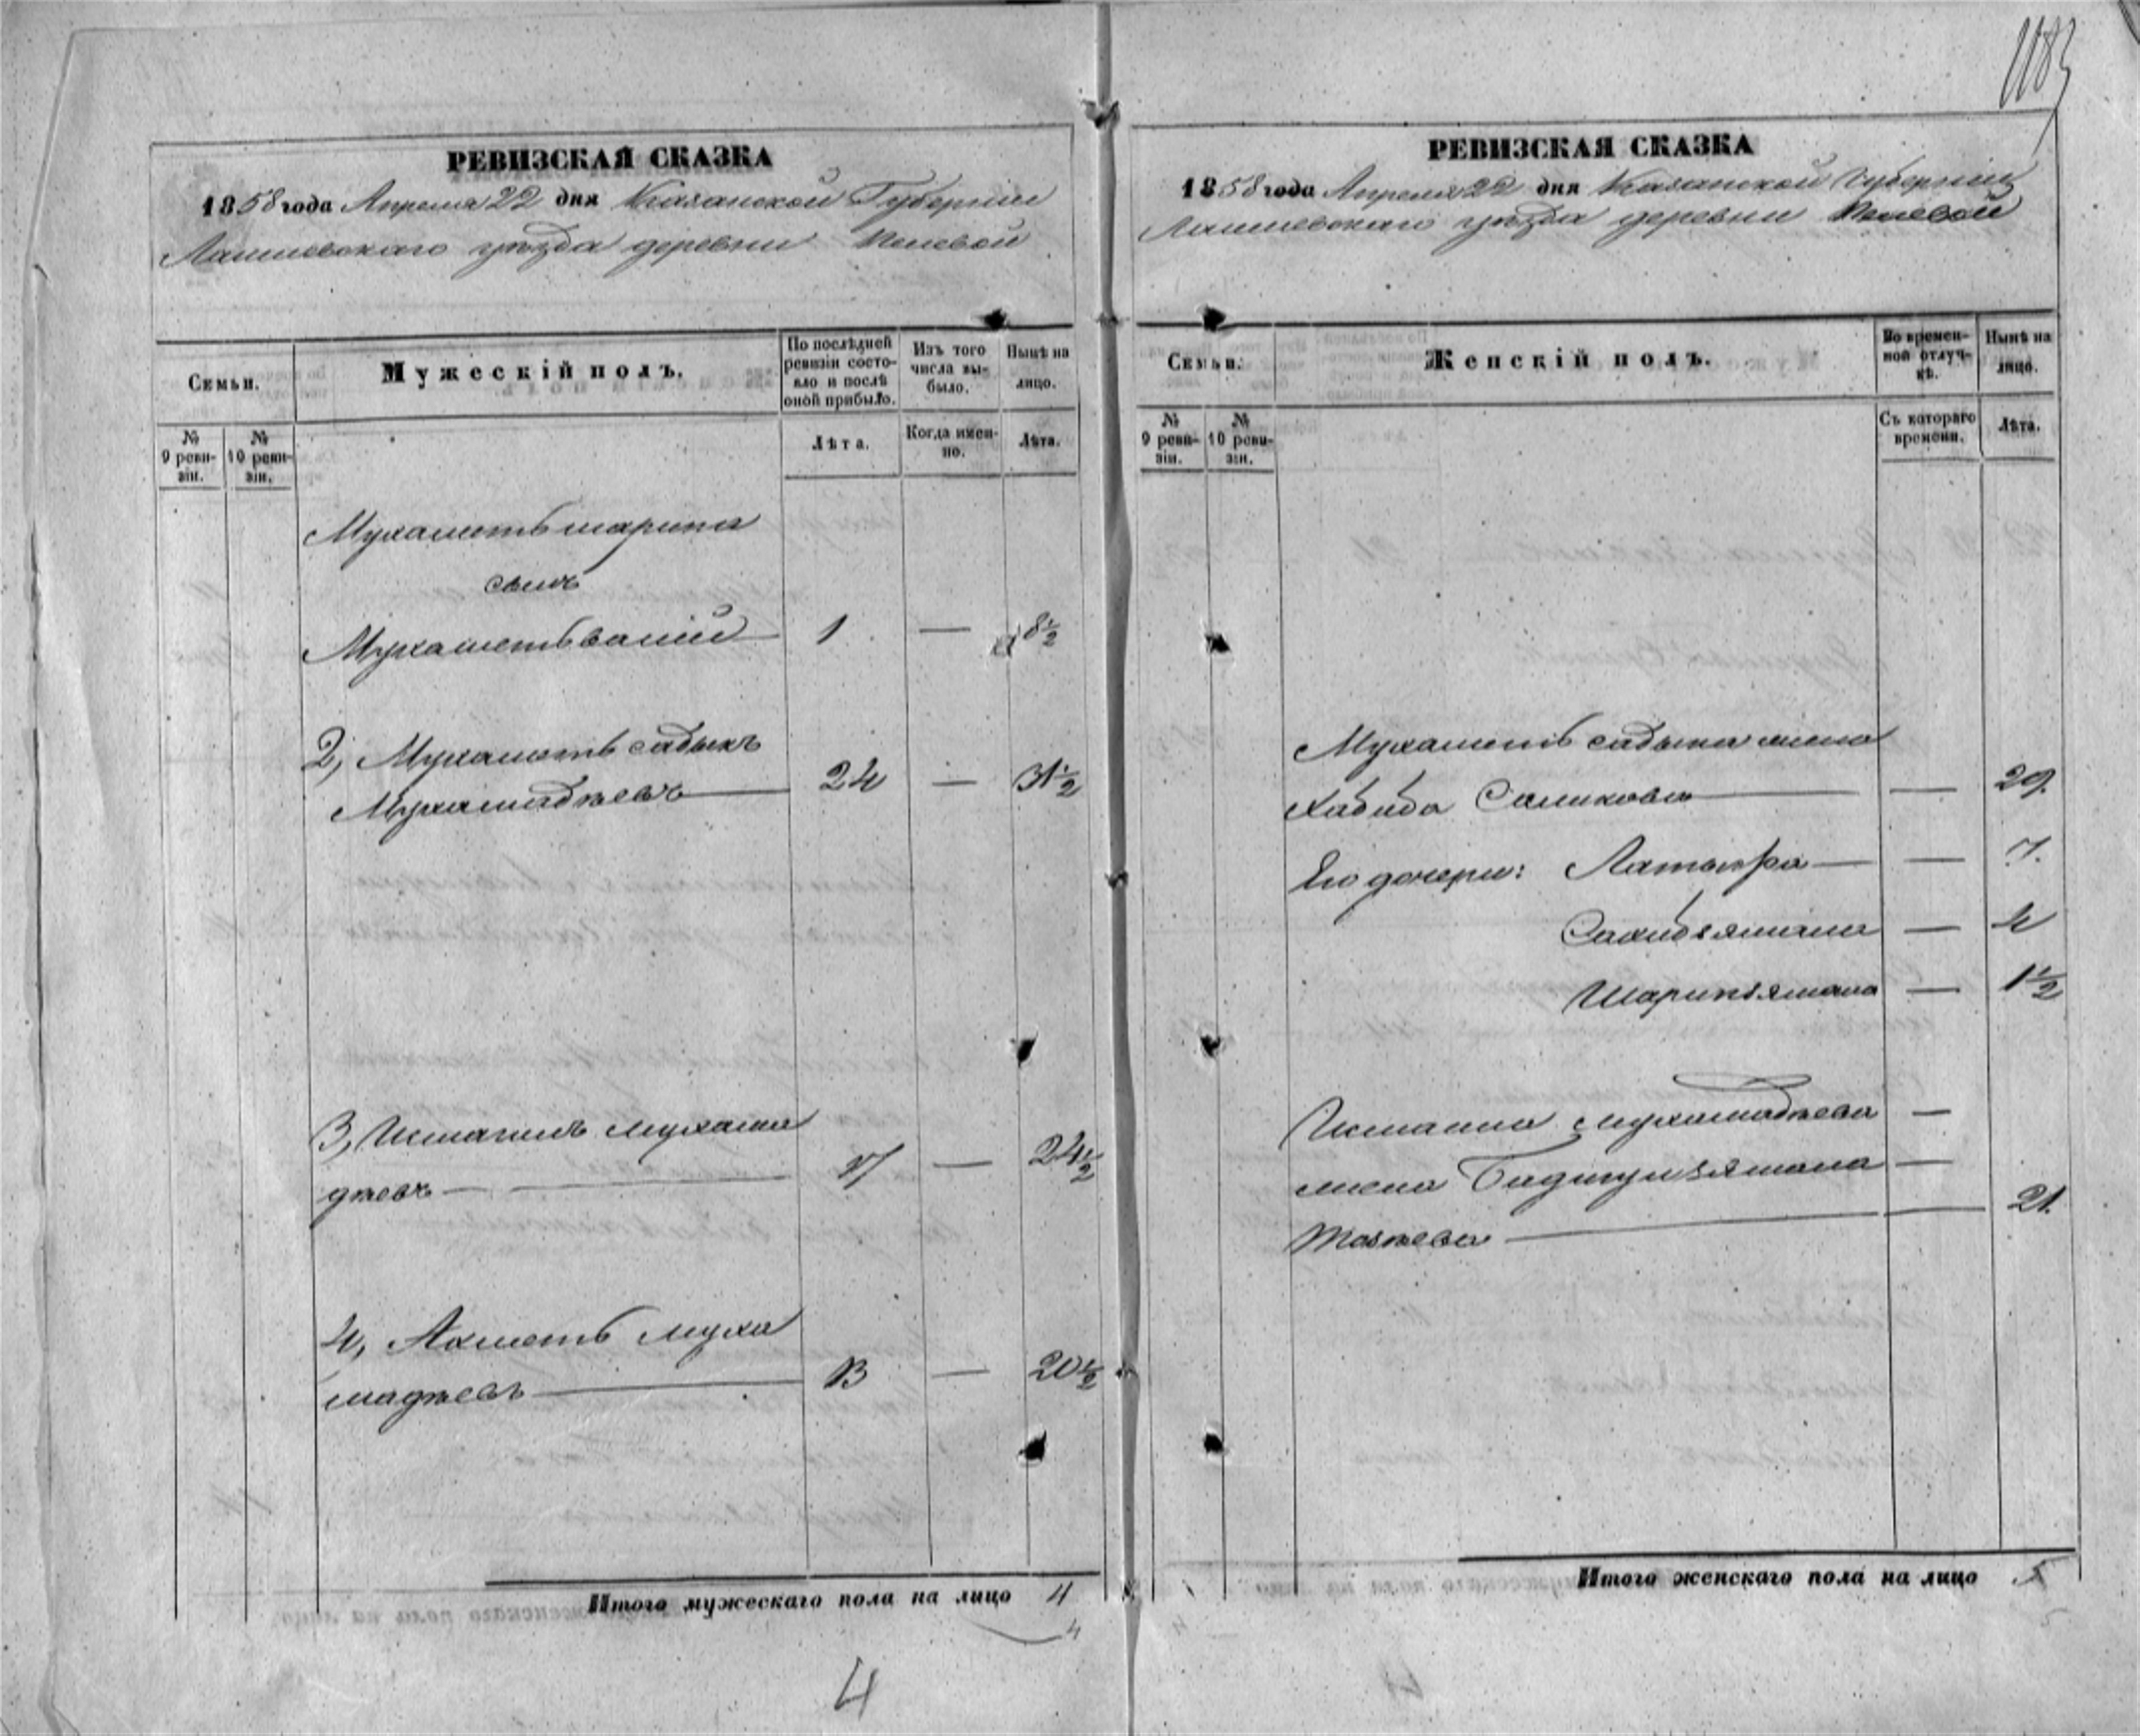 1183
РЕВИЗСКАЯ СКАЗКА
1858 года Апреля 22 дня Казанской Губернии
Лаишевскаго уѣзда деревни
Семьи.
Мужескій полъ.
По послѣдней ревизіи состояло и послѣ оной прибыло.
Изъ того числа выбыло.
Нынѣ на лицо.
№ 9 ревизіи.
№ 10 ревизіи.
Лѣта.
Когда именно.
Лѣта.
Мухаметьшарипа
сынъ
Мухаметьвалій — 1 — 8½
2, Мухаметь садыкъ
Мухамадѣевъ — 24 — 31½
3, Исмагилъ Мухама
дѣевъ — 17 — 24½
4, Ахметь Муха
мадѣевъ — 13 — 20½
Итого мужескаго пола на лицо 4
4
4
РЕВИЗСКАЯ СКАЗКА
1858 года Апреля 22 дня Казанской Губерніи
Лаишевскаго уѣзда деревни
Семьи.
Женскій полъ.
Во временной отлучкѣ.
Нынѣ на лицо.
№ 9 ревизіи.
№ 10 ревизіи.
Съ котораго времени.
Лѣта.
Мухаметь садыка жена
Хабиба Саликова — — 29.
Его дочери: — — 7.
Сахибзямала — 4
Шарипзямала — 1½
Мухамадѣева —
жена —
— 21.
Итого женскаго пола на лицо 5
5